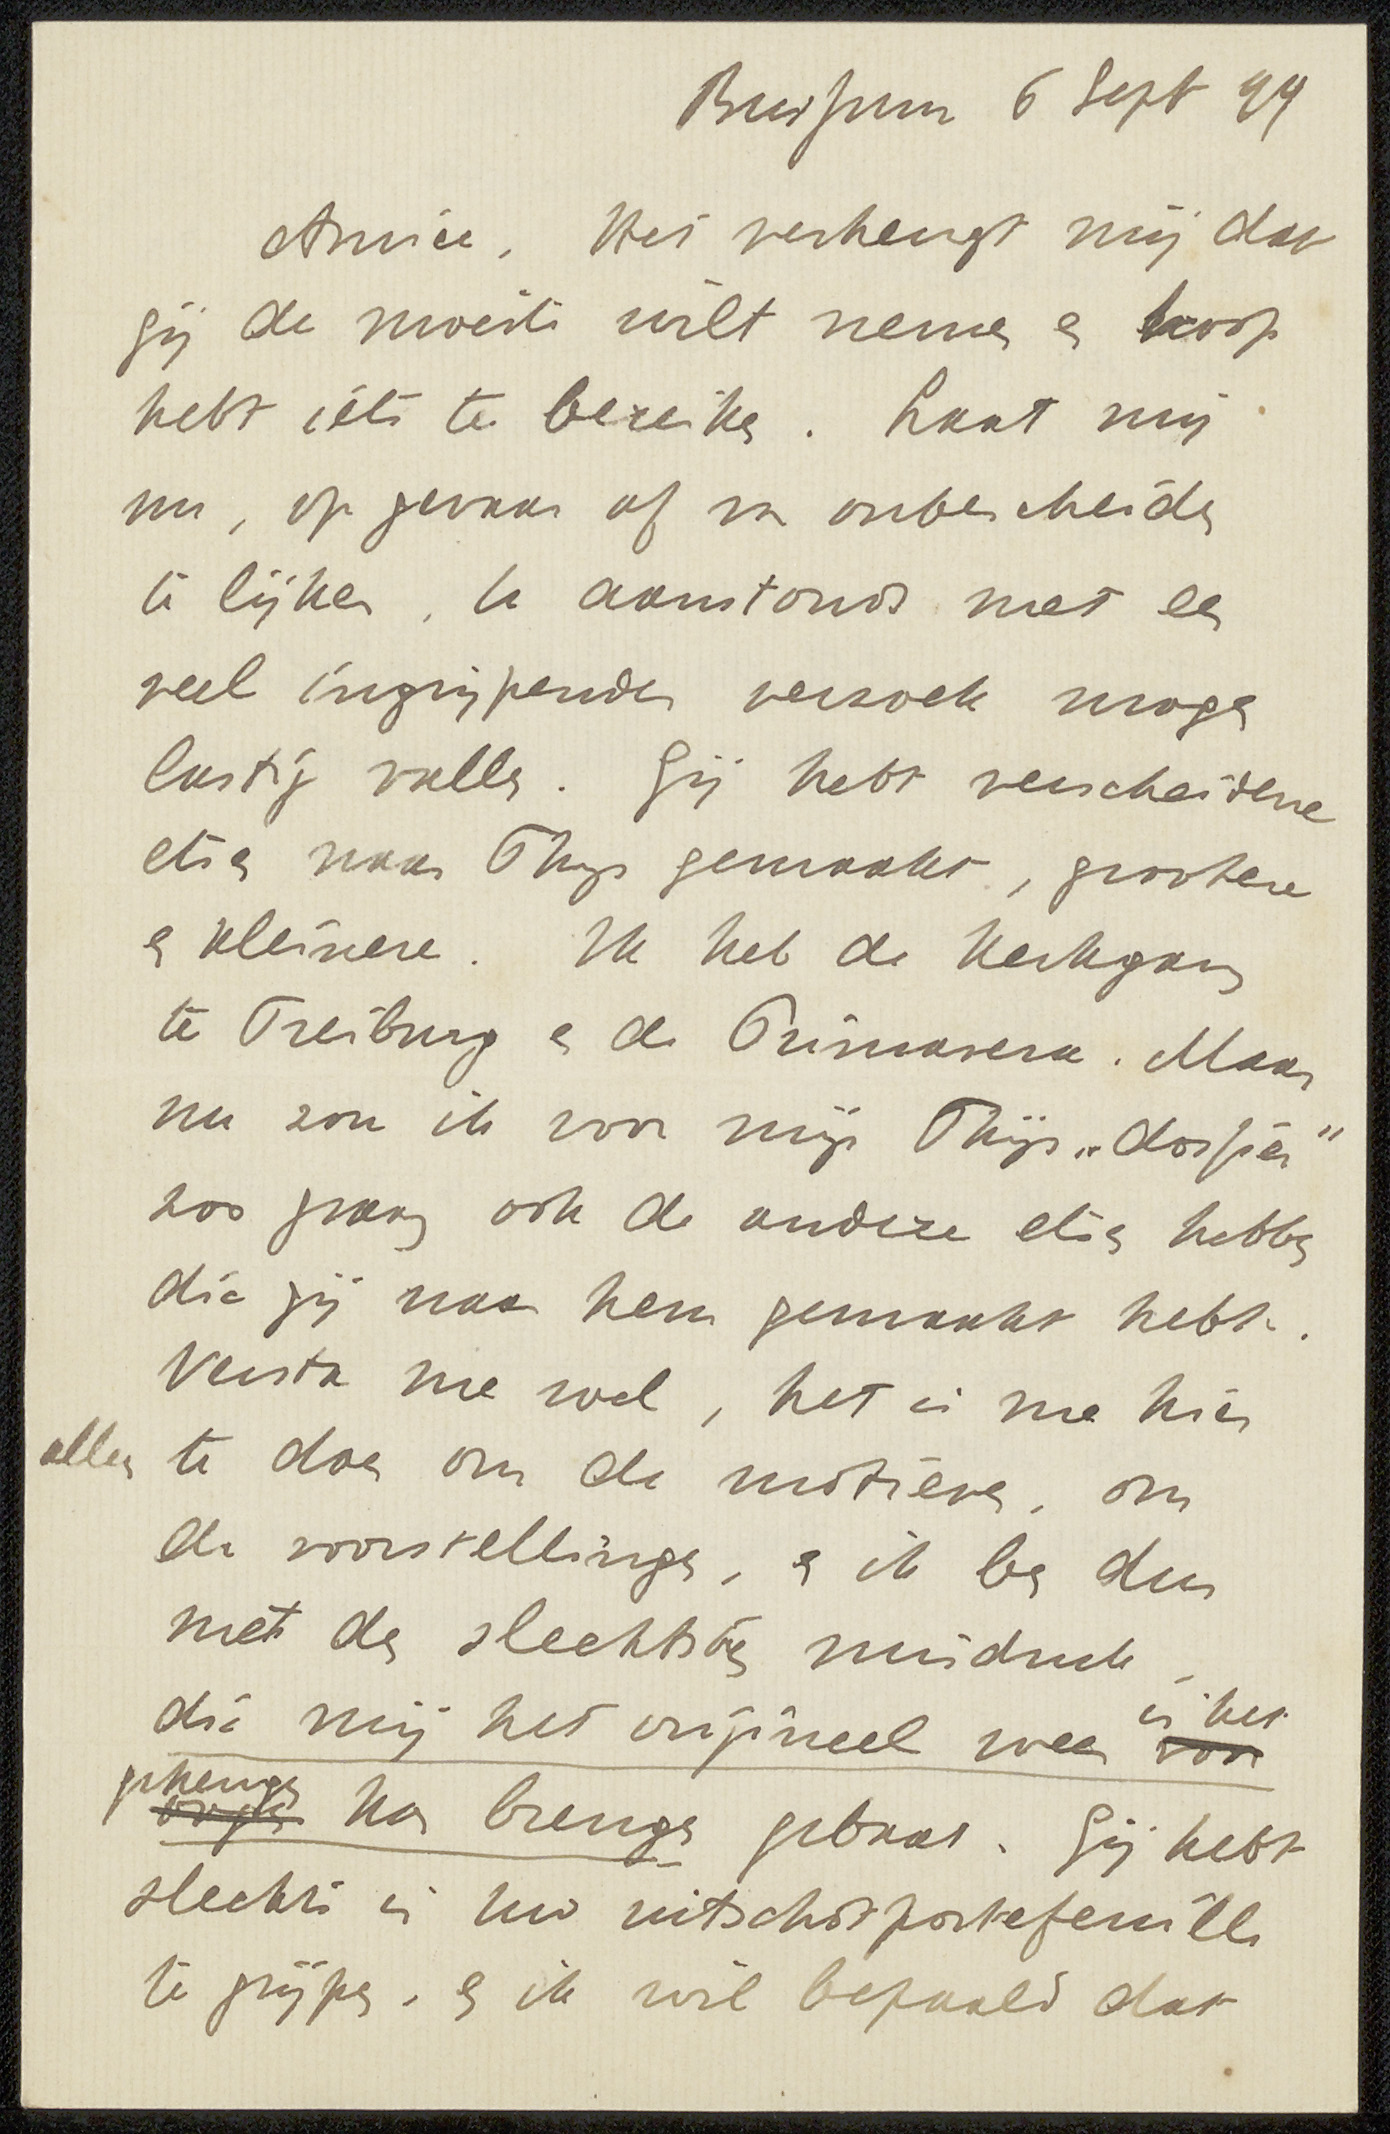 Bussum 6 Sept 94
Amice, Het verheugt mij dat
gij de moeite wilt nemen en hoop
hebt iets te bereiken. Laat mij
nu, op gevaar af van onbescheiden
te lijken, U aanstonds met een
veel ingrijpender verzoek mogen
lastig vallen. Gij hebt verscheidene
etsen naar Thijs gemaakt, grootere
en kleinere. Ik heb de Kerkgang
te Freiburg en de Primavera. Maar
nu zou ik voor mijn Thijs „dossier"
zoo graag ook de andere etsen hebben
die gij naar hem gemaakt hebt.
Versta me wel, het is me hier
alleen te doen om de motieven, om
de voorstellingen, en ik ben dus
met den slechtsten misdruk,
die mij het origineel weer in het voor
geheugen oogen kan brengen gebaat. Gij hebt
slechts in uw uitschotportefeuille
te grijpen, en ik wil bepaald dat